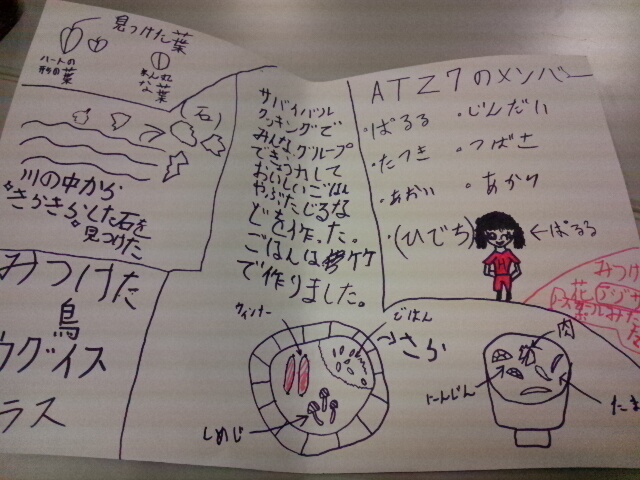 見つけた葉
ハートの
形の葉
まんまる
な葉
(石)
川の中から
きらきらした石を
見つけた
みつけた
鳥
ウグイス
ラス
サバイバル
クッキングで
みんなグループ
で
おいしいごはん
やぶたじるな
どを作った。
ごはんは竹
で作りました。
ウインナー
ごはん
しめじ
ATZ7のメンバー
・ぱるる
・じんだい
・たつき
・つばさ
・あおい
・あかり
・(ひでち)
←ぱるる
みつけ
花
肉
にんじん
たま